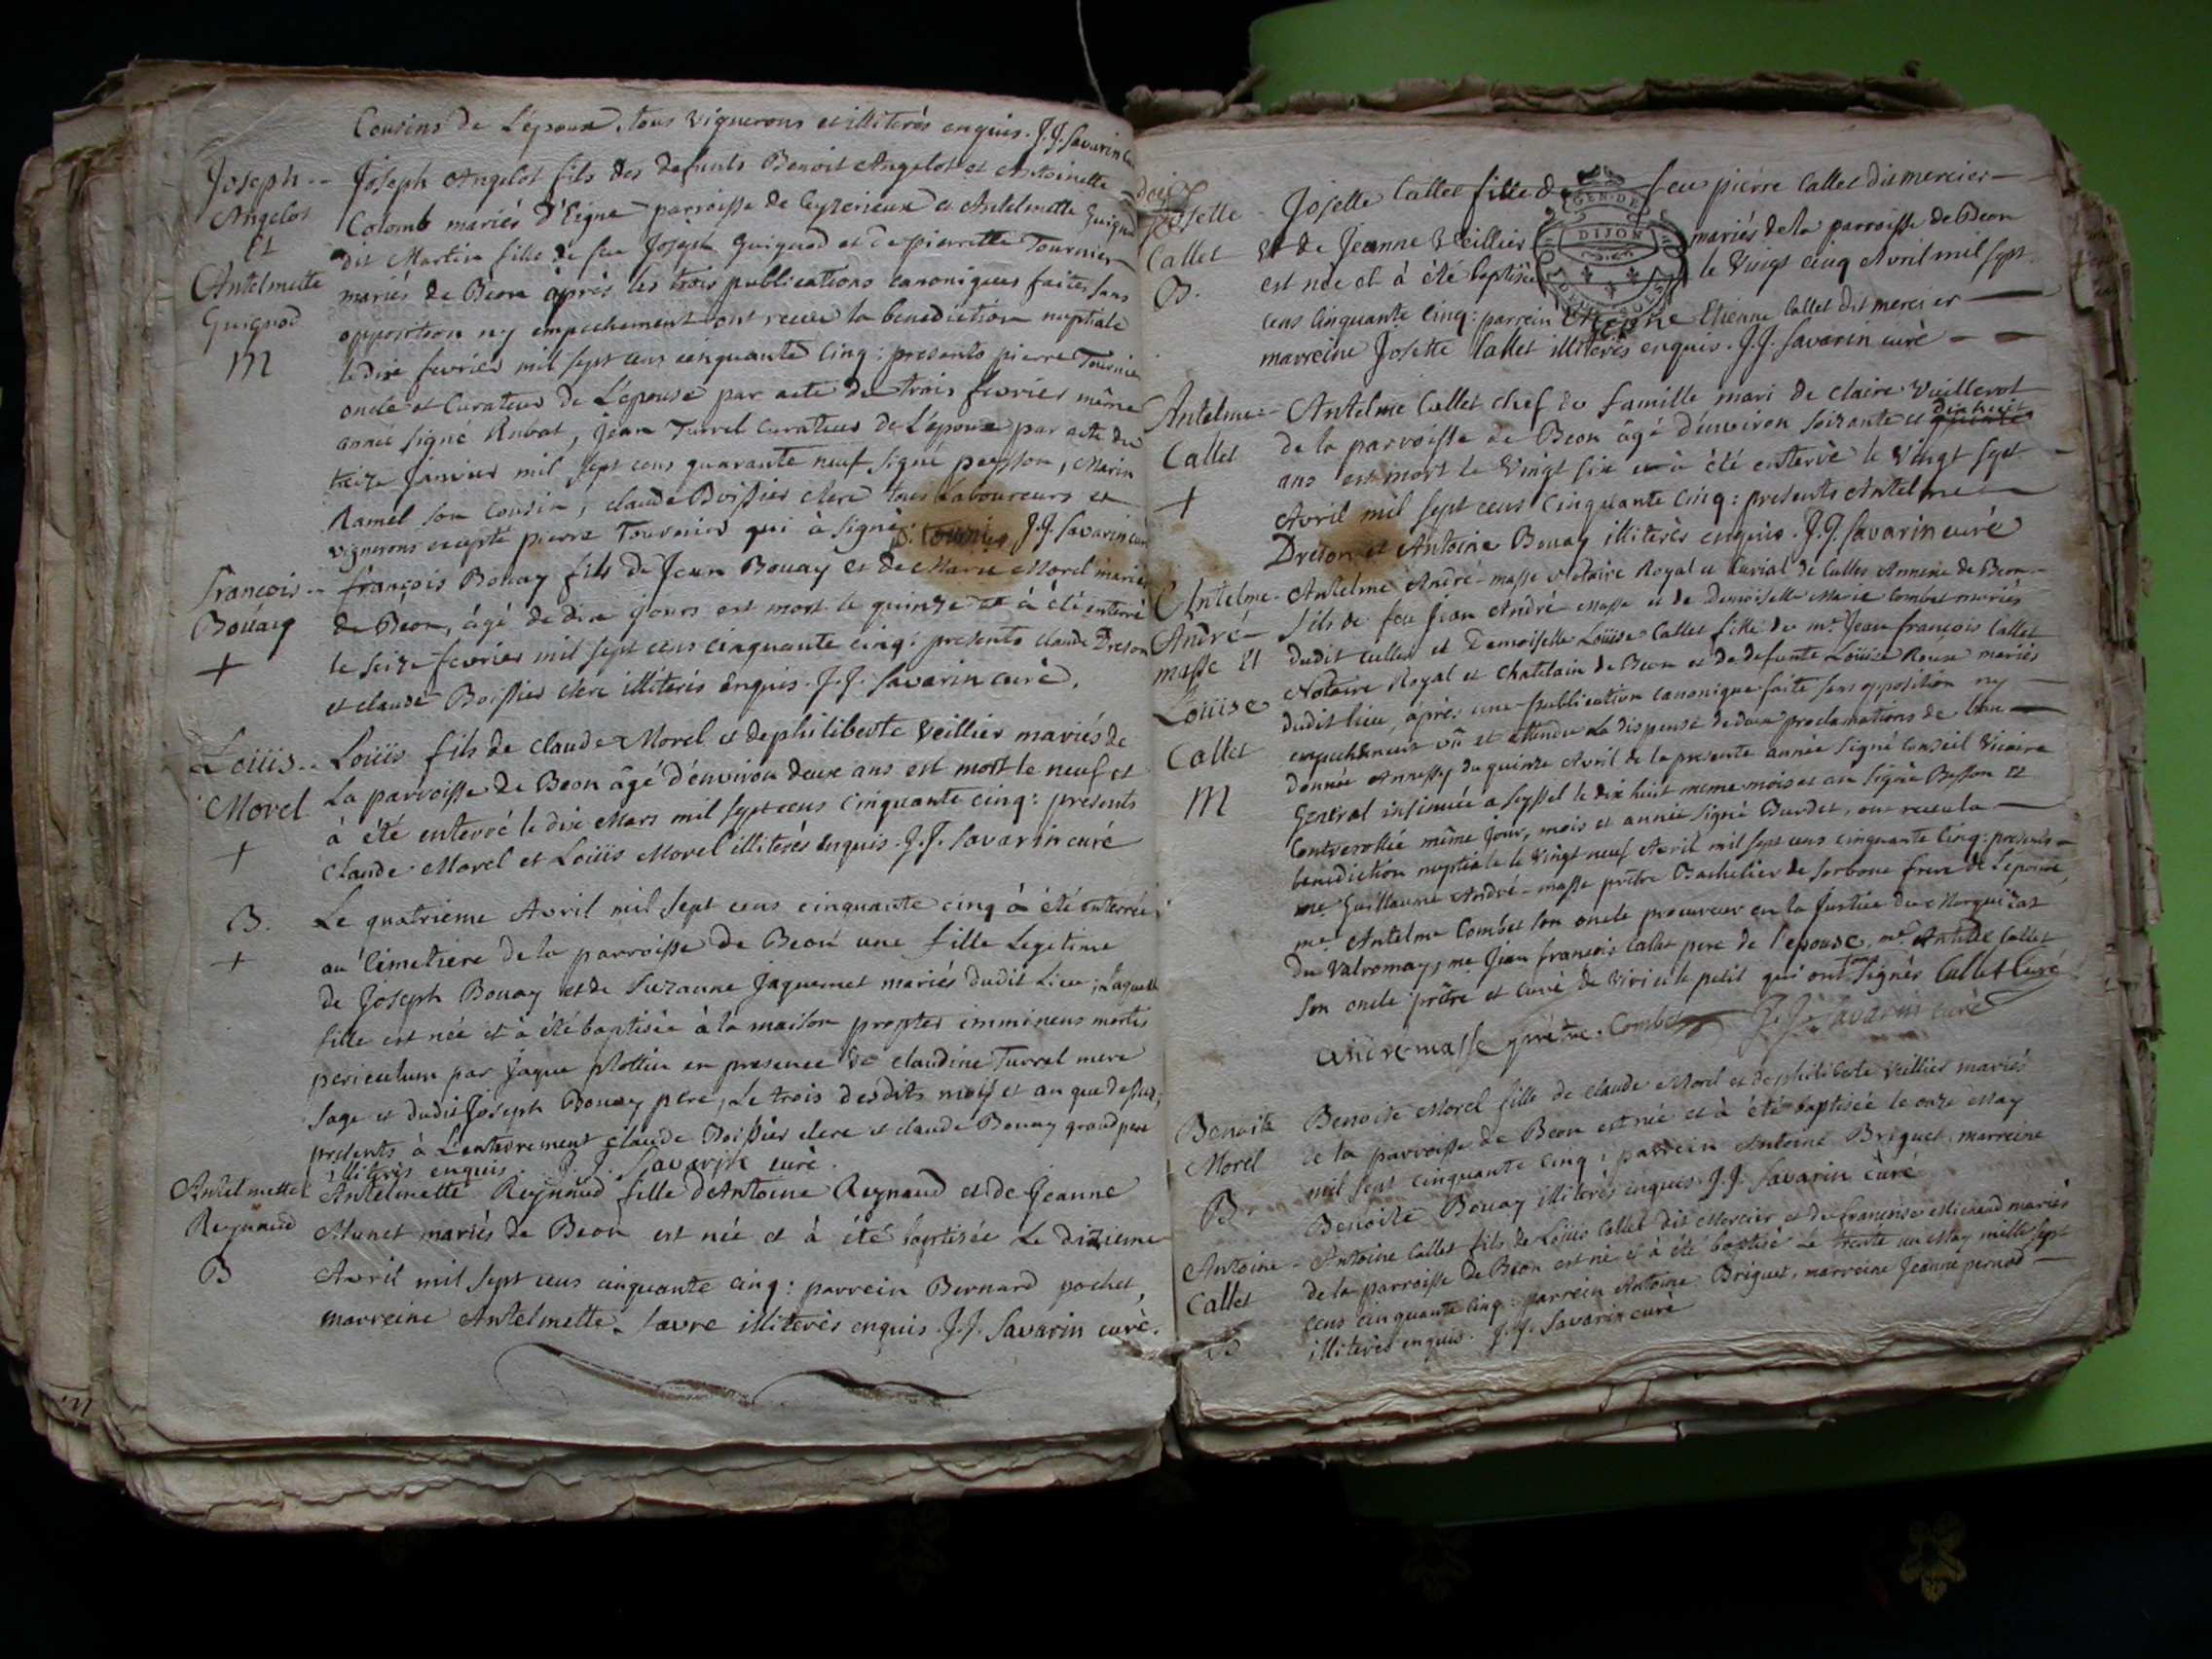 Cousins de L'epoux, tous vignerons et illiterés enquis. J.J. Savarin
Joseph Angelot
et
Antelmette
Guignod
M
Joseph Angelot fils des defunts Benoit Angelot et Antoinette
Colomb mariés d'Eigne parroisse de Ceyzerieux et Antelmette Guignod
dit Martin fille de feu Joseph Guignod et de pierrette Tournier
mariés de Beon après les trois publications canoniques faites sans
opposition ny empechement ont receu la benediction nuptiale
le dix fevrier mil sept cens cinquante cinq : presents pierre Tournier
oncle et Curateur de L'epouse par acte du trois fevrier même
année signé Rubat, Jean Turrel Curateur de L'epoux par acte du
treize Janvier mil sept cens quarante neuf signé peysson, Marin
Ramel son Cousin, claude Boissier clerc tous Laboureurs et
vignerons excepté pierre Tournier qui à signé. P. Tournier J.J. Savarin curé
François
Boüay
+
françois Bouay fils de Jean Bouay et de Marie Morel mariés
de Beon, âgé de dix jours est mort le quinze et à été enterré
le seize fevrier mil sept cens cinquante cinq : presents claude Dreson
et claude Boissier clerc illiterés enquis. J.J. Savarin curé.
Loüis
Morel
+
Loüis fils de claude Morel et de philiberte Veillier mariés de
La parroisse de Beon âgé d'environ deux ans est mort le neuf et
à été enterré le dix Mars mil sept cens cinquante cinq : presents
Claude Morel et Loüis Morel illiterés enquis. J.J. Savarin curé
B.
+
Le quatrieme Avril mil sept cens cinquante cinq à été enterrée
au Cimetiere de la parroisse de Beon une fille Legitime
de Joseph Bouay et de Suzanne Jaquemet mariés dudit Lieu ; Laquelle
fille est née et à été baptisée à la maison propter imminens mortis
periculum par Jaque Mottin en presence de claudine Turrel mere
sage et dudit Joseph Bouay pere, Le trois desdits mois et an que dessus ;
presents à L'enterrement claude Boissier clerc et claude Bouay grand pere
illiterés enquis. J.J. Savarin curé.
Antelmette
Reynaud
B
Antelmette Reynaud fille d'Antoine Reynaud et de Jeanne
Munet mariés de Beon est née et à été baptisée Le dixieme
Avril mil sept cens cinquante cinq : parrein Bernard pochet,
marreine Antelmette favre illiterés enquis. J.J. Savarin curé.
Josette
Callet
B.
Josette Callet fille de feu pierre Callet dit mercier
Et de Jeanne Veillier mariés de la parroisse de Beon
est née et à été baptisée le Vingt cinq Avril mil sept
cens Cinquante Cinq : parrein Etienne Callet dit mercier
marreine Josette Callet illiterés enquis. J.J. Savarin curé
GEN. DE
DIJON
DEUX SOLS
Antelme
Callet
+
Antelme Callet chef de famille mari de claire Vuillerot
de la parroisse de Beon âgé d'environ soixante et dix huit
ans est mort le Vingt six et à été enterré le Vingt sept
Avril mil sept cens Cinquante Cinq : presents Antelme
Dreson et Antoine Bouay illiterés enquis. J.J. Savarin curé
Antelme
André
masse Et
Loüise
Callet
M
Antelme André-masse Notaire Royal et Curial de Culloz Annexe de Beon
fils de feu Jean André Masse et de Demoiselle Marie Combet mariés
dudit Culloz et Demoiselle Loüise Callet fille de me. Jean françois Callet
Notaire Royal et Chatelain de Beon et de defunte Loüise Roux mariés
dudit lieu, après une publication canonique faite sans opposition ny
empechement vû et attendu La dispense de deux proclamations de ban
donnée Annessy du quinze Avril de la presente année signé Conseil Vicaire
General insinuée a Seyssel le dix huit meme mois et an signé Besson Et
Contrerollée même jour, mois et année signé Burdet, ont receu la
benediction nuptiale le Vingt neuf Avril mil sept cens cinquante Cinq : presents
me Guillaume André-masse prêtre Bachelier de Sorbone frere de L'epoux,
me. Antelme Combet son oncle procureur en la Justice du Marquizat
du Valromay, me Jean francois Callet pere de l'epouse, me Anthelme Callet
son oncle prêtre et curé de Virieu le petit qui ont tous signés Callet Curé
André-masse prêtre. Combet J.J. Savarin curé
Benoite
Morel
B
Benoite Morel fille de claude Morel et de philiberte Veillier mariés
de la parroisse de Beon est née et à été baptisée le onze May
mil sept cinquante Cinq : parrein Antoine Briguet, marreine
Benoite Bouay illiterés enquis. J.J. Savarin curé
Antoine
Callet
B
Antoine Callet fils de Loüis Callet dit Mercier et de francoise Michaud mariés
de la parroisse de Beon est né et à été baptisé Le trente un May mille sept
cens cinquante cinq : parrein Antoine Briguet, marreine Jeanne pernod
illiterés enquis. J.J. Savarin curé